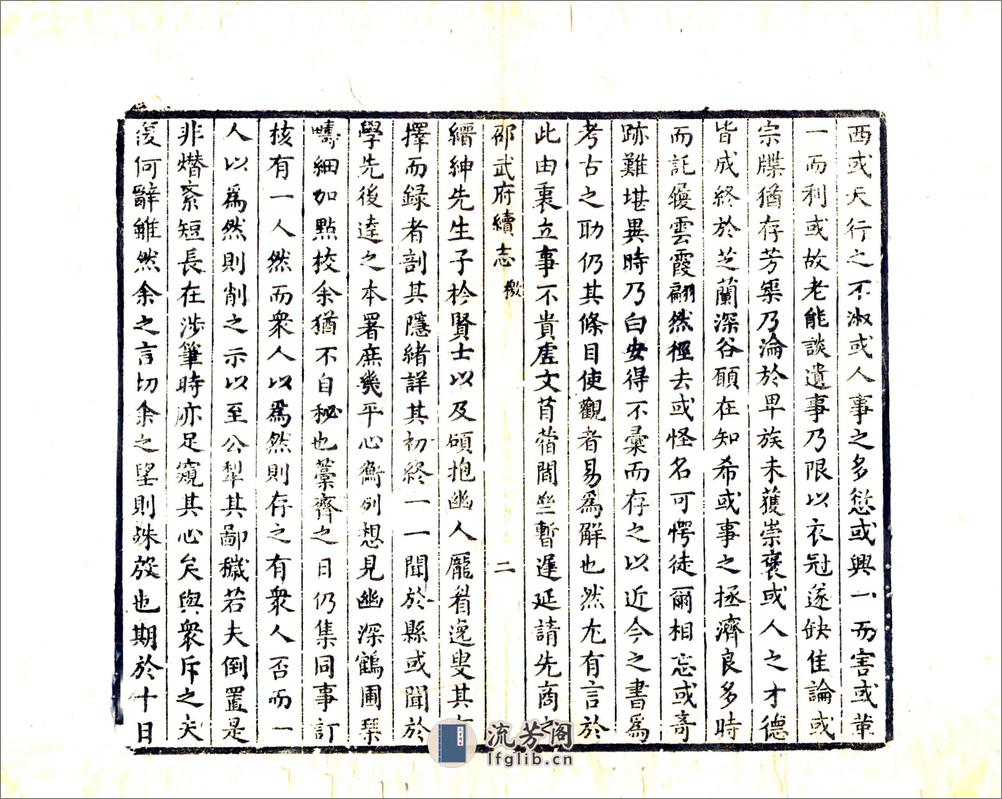 西或天行之不淑或人事之多愆或興一而害或革
一而利或故老能談遺事乃限以衣冠遂缺佳論或
宗牒猶存芳槩乃淪於卑族未獲崇褒或人之才德
皆成終於芝蘭深谷願在知希或事之拯濟良多時
而託僾雲霞翩然徑去或怪名可愕徒爾相忘或奇
跡難堪異時乃白安得不彙而存之以近今之書為
考古之助仍其條目使觀者易為解也然尤有言於
此由裏立事不貴虛文苜蓿間坐暫遲延請先商之
邵武府續志 檄 二
縉紳先生子衿賢士以及碩抱幽人龐眉逸叟其
擇而録者剖其隱緒詳其初終一一聞於縣或聞於
學先後達之本署庶幾平心衡列想見幽深鶴圃琹
疇細加點校余猶不自秘也藁齊之日仍集同事訂
核有一人然而衆人以爲然則存之有衆人否而一
人以爲然則削之示以至公犁其鄙穢若夫倒置是
非熸紊短長在涉筆時亦足窺其心矣與衆斥之夫
復何辭雖然余之言切余之望則殊殷也期於十日
流芳阁
lfglib.cn